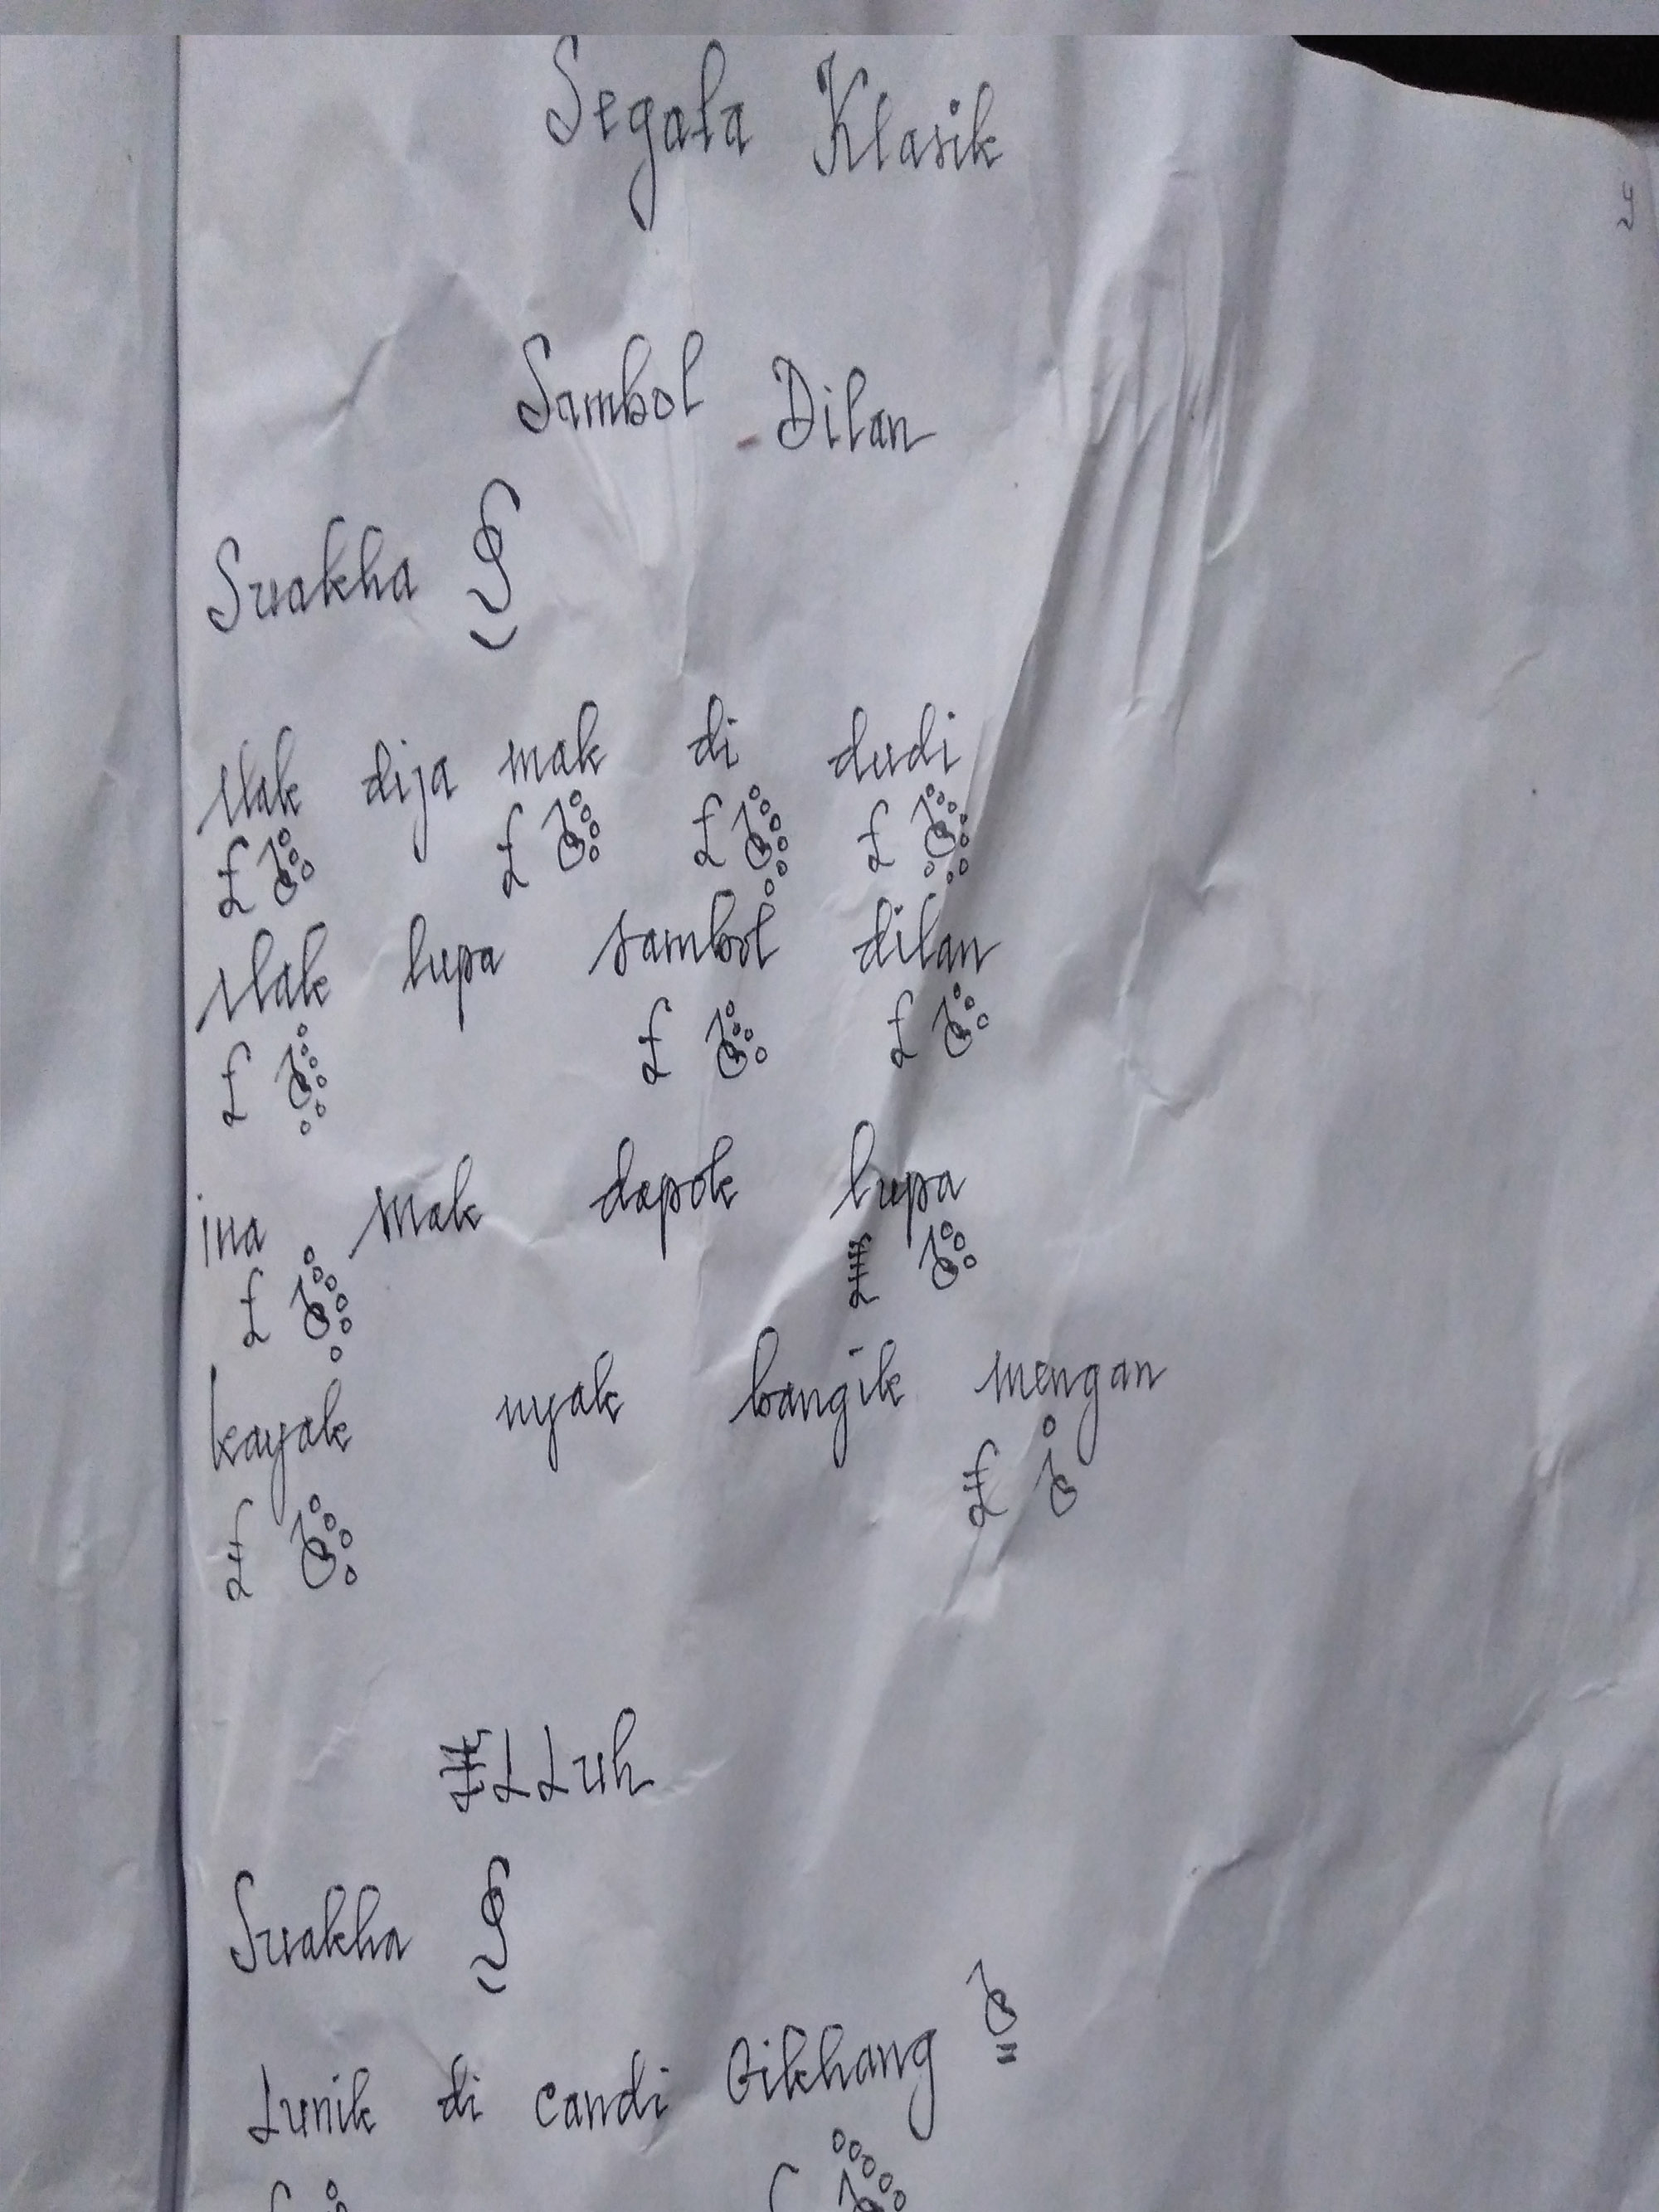 Segala Klasik
Sambol Dilan
Suakha
Mak dija mak di dudi
£ £ £ £
Mak lupa sambol dilan
£ £ £
ina mak dapok lupa
£
kayak nyak bangik mengan
LLuh
Suakha
Lunik di candi Gikhang